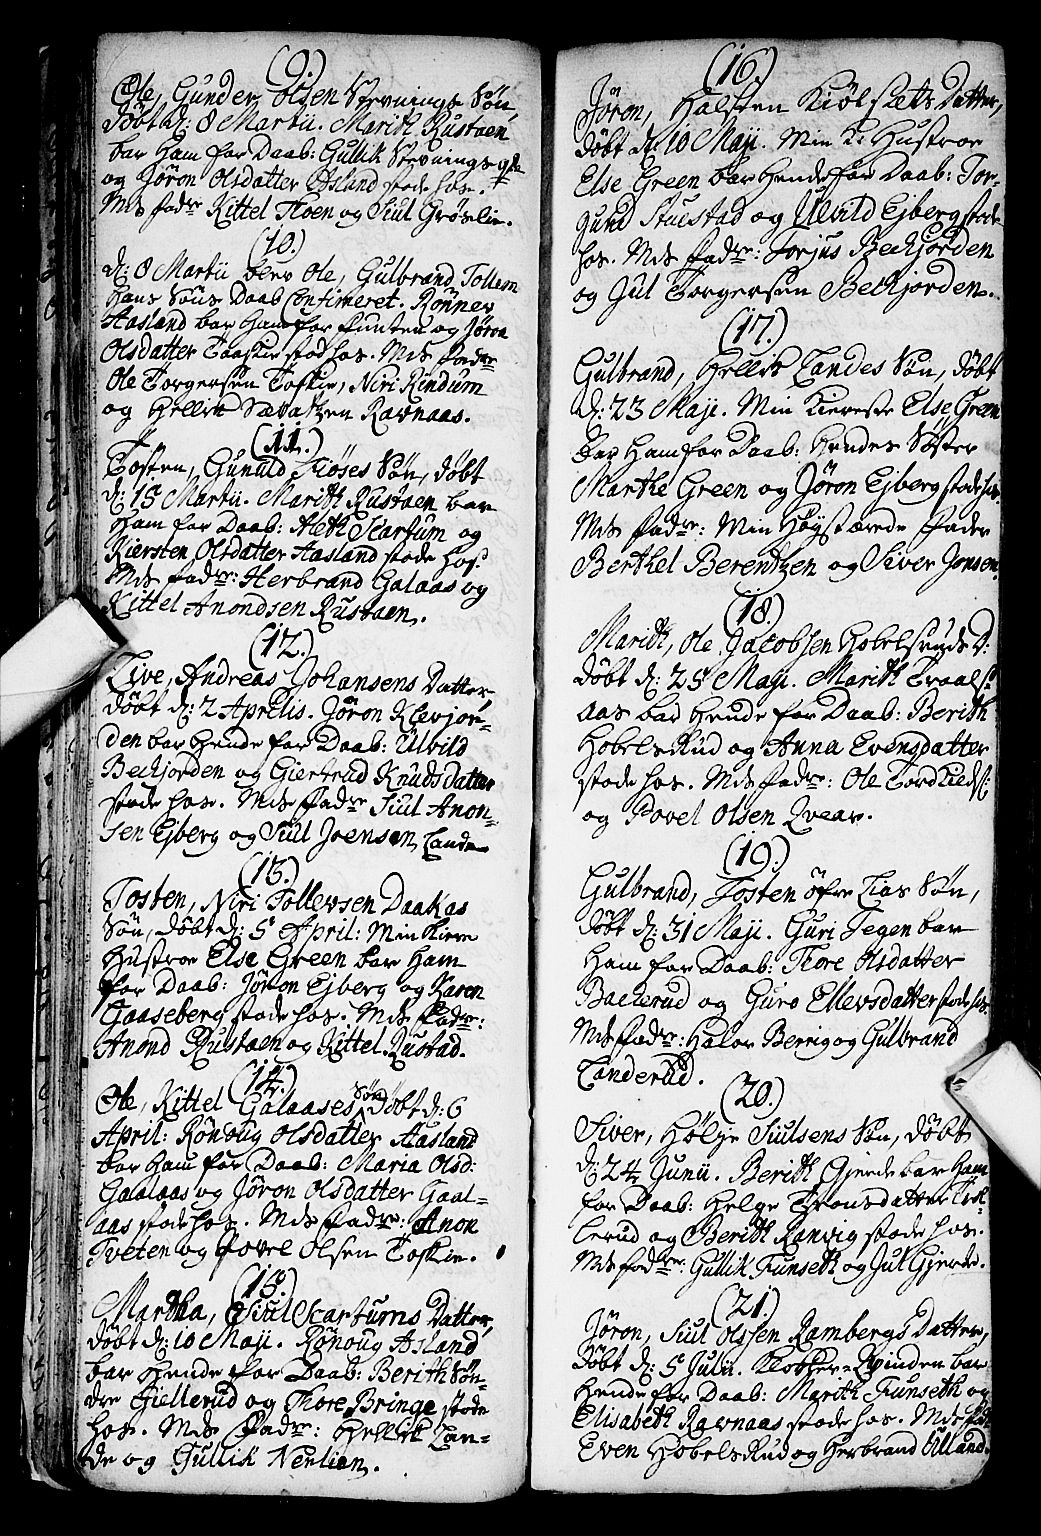 (9.)
Ole, Gunder Olsen Stevnings Søn,
døbt d: 8 Martii. Marith Rustaen
bar ham for Daab: Gullik Stevnings
og Jøron Olsdatter Asland stode hos.
Mds fadre Kittel Floen og Siul Grøslie.
(10.)
d: 8 Martii blev Ole, Gulbrand Tollefsn
hans Søns Daab Confimeret. Rønnev
Aasland bar ham for funten og Jøron
Olsdatter Toeskie stod hos. Mds fadre
Ole Torgersen Toskie, Niri Rindum
og Hellik Sævatzen Ravnaas.
(11.)
Tosten, Gunuld Fiøses Søn, døbt
d: 15 Martii. Marith Rustaen bar
ham for Daab: Aleth Skartum og
Kiersten Olsdatter Aasland stode hos.
Mds fadre: Herbrand Galaas og
Kittel Anondsen Rustaen.
(12.)
Live, Andreas Johansens Datter
døbt d: 2 Aprilis. Jøron Klevjor-
den bar hende for Daab: Ulvild
Beckjorden og Giertrud Knudsdatter
stode hos. Mds fadre Siul Anon-
sen Ejberg og Siul Joensen Lande
(13.)
Tosten, Niri Tollevsen Daakas
Søn, døbt d: 5 April: Min kiere
Hustroe Else Green bar ham
for Daab: Jøron Ejberg og Karen
Gaaseberg stode hos. Mds fadre:
Anond Rustaen og Kittel Rustad.
(14.)
Ole, Kittel Galaases Søn døbt d: 6
April: Rønoug Olsdatter Aasland
bar ham for Daab: Maria Olsd:
Gaalaas og Jøron Olsdatter Gaal-
aas stode hos. Mds fadre: Anon
Tveten og Povel Olsen Toskie.
(15.)
Martha, Siul Skartums Datter,
døbt d: 10 Maji. Rønoug Asland
bar hende for Daab: Berith Søn-
dre Fjellerud og Thore Bringe stode
hos. Mds Fadre: Hellik Lan-
de og Gullik Nerlien.
(16.)
Jøron, Halsten Kiølsæts Datter,
døbt d: 10 Maji. Min K: Hustroe
Else Green bar hende for Daab: Tor-
gund Stuestad og Ulvild Ejberg stode
hos. Mds fadre: Torjus Beckjorden
og Jul Torgersen Beckjorden.
(17.)
Gulbrand, Hellik Landes Søn, døbt
d: 23 Maji. Min Kiereste Else Green
bar ham for Daab: hendes Søster
Marthe Green og Jøron Ejberg stode hos.
Mds fadre: Min Højstærede Fader
Berthel Berentzen og Siver Jonsen.
(18.)
Marith, Ole Jacobsen Hobelsruds D:
døbt d: 25 Maji. Marith Traals-
aas bar hende for Daab: Berith
Hobelsrud og Anna Evensdatter
stode hos. Mds fadre: Ole Tordkields:
og Povel Olsen Qvear.
(19.)
Gulbrand, Tosten øfre Lias Søn,
døbt d: 31 Maji. Guri Tegen bar
ham for Daab: Thore Olsdatter
Backerud og Guro Ellevsdatter stode hos.
Mds fadre: Halvor Berrig og Gulbrand
Landerud.
(20.)
Siver, Hølje Siulsens Søn, døbt
d: 24 Junii. Berith Gjerde bar ham
for Daab: Helge Tronsdatter
lerud og Berith Ranvig stode hos.
Mds fadre: Gullik Funseth og Jul Gjerde.
(21.)
Jøron, Siul Olssen Rambergs Datter,
døbt d: 5 Julii. Klokker-Qvinden bar
hende for Daab: Marith Funseth og
Elisabeth Ravnaas stode hos. Mds fad:
Even Hobelsrud og Herbrand Ulland.